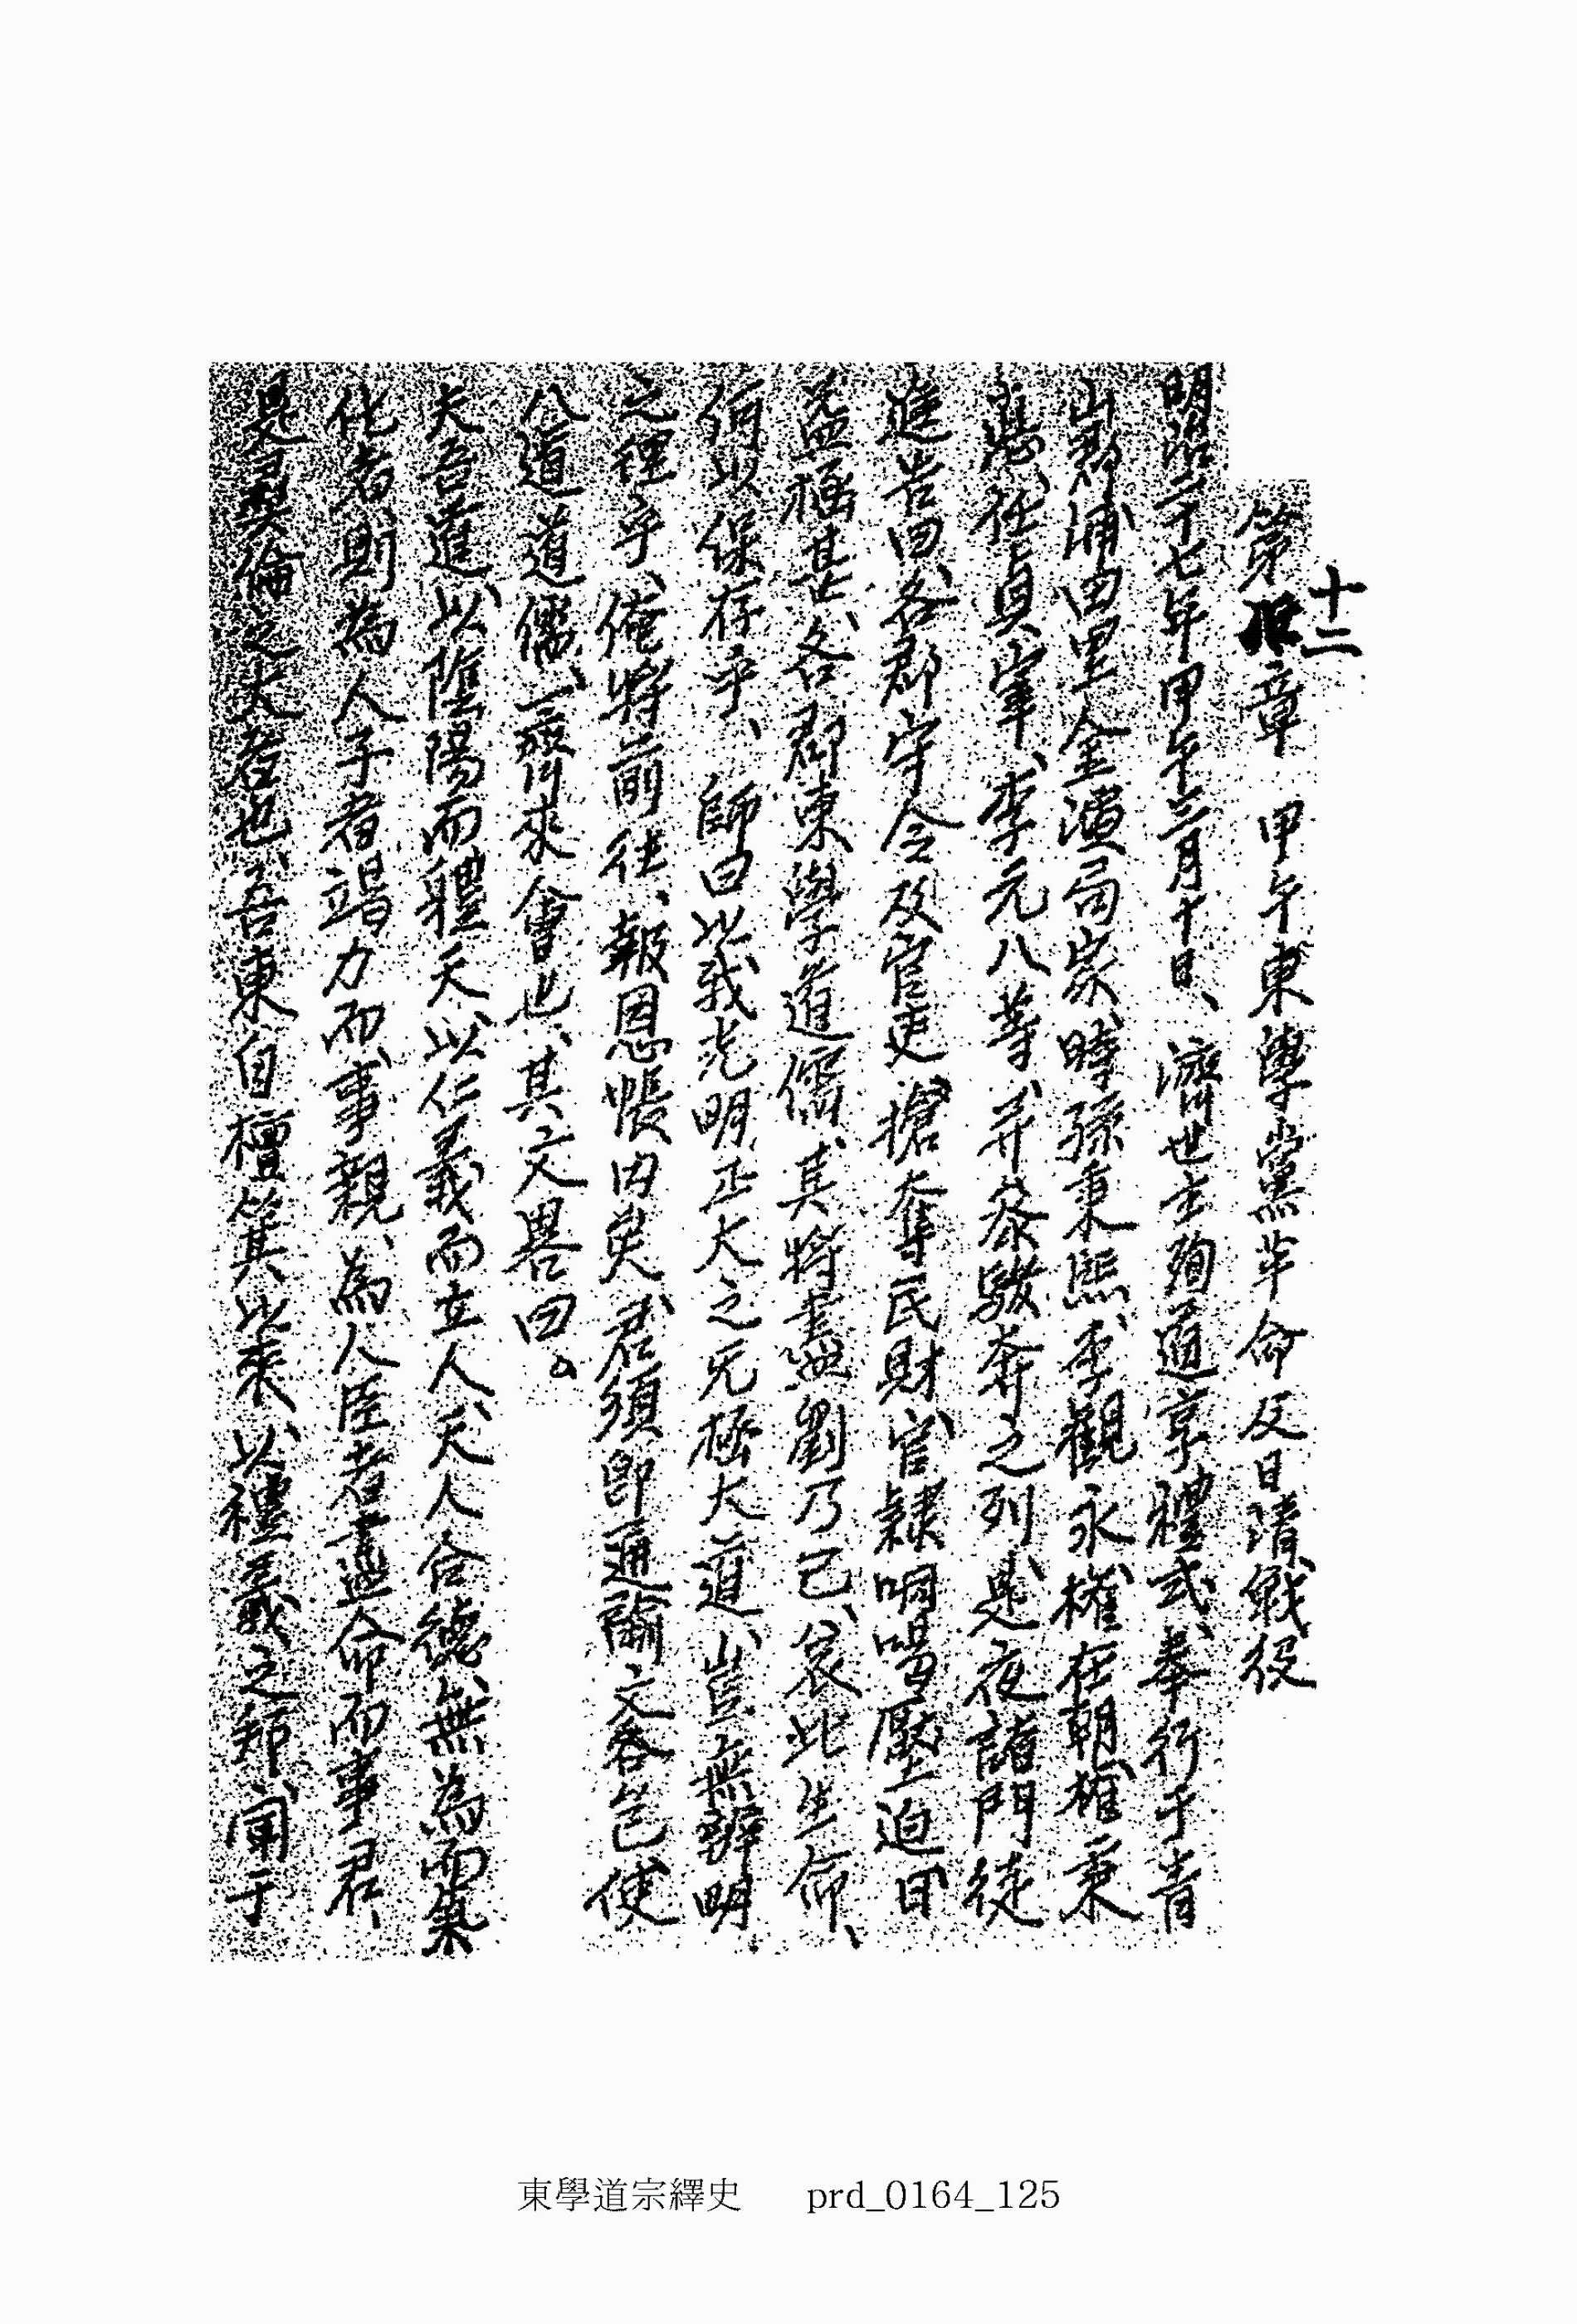 第十二章 甲午東學黨革命及日清戰役
明治二十七年甲午三月十日、濟世主殉道享禮式、奉行于青
山郡浦田里金演局家、時孫秉熙、李觀永、權在朝、權秉
悳、任貞宰、李元八等、幷參駿奔之列、是夜諸門徒
進告曰、各郡守令及官吏、搶奪民財、官隷呵喝壓迫日
益極甚、各郡東學道儒、其將盡劉乃已、哀此生命、
何以保存乎、 師曰以我光明正大之无極大道、豈無辨明
之理乎、俺將前往、報恩帳內矣、君須卽通諭文各包、使
八道道儒、一齊來會也、其文畧曰。
夫吾道、以陰陽而體天、以仁義而立人、天人合德、無為而氣
化者、則為人子者竭力而事親、為人臣者盡命而事君、
是彛倫之大者也、吾東自檀箕以來、以禮義之邦、聞于
東學道宗繹史 prd_0164_125